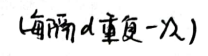 (每隔d重复一次)